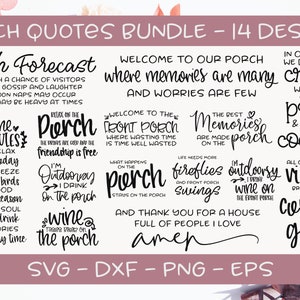 CH QUOTES BUNDLE - 14 DES
Forecast
H A CHANCE OF VISITORS
GOSSIP AND LAUGHTER
OON NAPS MAY OCCUR
AY BE HEAVY AT TIMES
WELCOME TO OUR PORCH
where memories are many
AND WORRIES ARE FEW
RELAX ON THE
Porch
THE WORRIES ARE FEW AND THE
friendship is free
WELCOME TO THE
FRONT PORCH
WHERE WASTING TIME
IS TIME WELL WASTED
The Best
Memories
ARE MADE ON
the porch
I'm
Outdoorsy
I DRINK
on the porch
WHAT HAPPENS
ON THE
porch
STAYS ON THE PORCH
LIFE NEEDS MORE
fireflies
AND FRONT PORCH
swings
I'm
outdoorsy
I DRINK
wine on
THE FRONT PORCH
wine
the porch
AND THANK YOU FOR A HOUSE
FULL OF PEOPLE I LOVE
amen
SVG - DXF - PNG - EPS